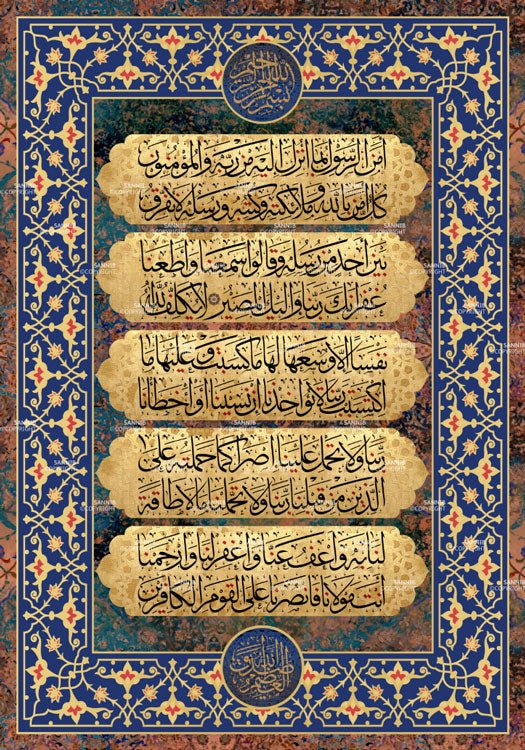 بسم الله الرحمن الرحيم
آمن الرسول بما انزل اليه من ربه والمؤمنون
كل آمن بالله وملائكته وكتبه ورسله لا نفرق
بين احد من رسله وقالوا سمعنا واطعنا
غفرانك ربنا واليك المصير لا يكلف الله
نفسا الا وسعها لها ما كسبت وعليها ما
اكتسبت ربنا لا تؤاخذنا ان نسينا او اخطأنا
ربنا ولا تحمل علينا اصرا كما حملته على
الذين من قبلنا ربنا ولا تحملنا ما لا طاقة
لنا به واعف عنا واغفر لنا وارحمنا
انت مولانا فانصرنا على القوم الكافرين
صدق الله
SANNIB
©COPYRIGHT